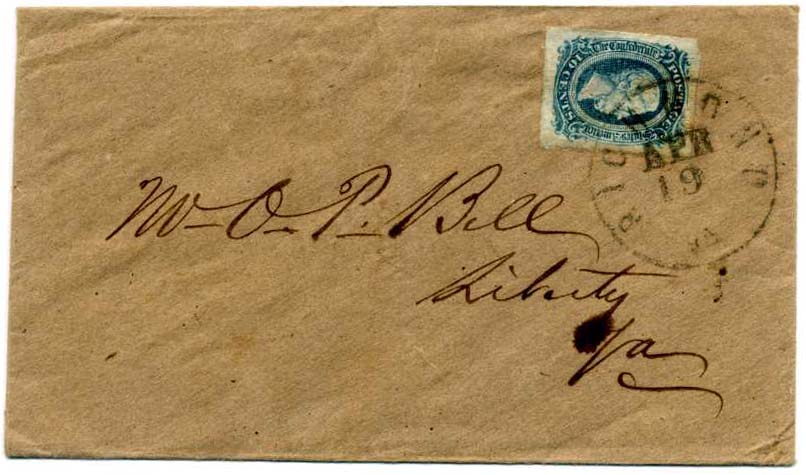 The Confederate
States of America
POSTAGE
10 CENTS
RICHMOND
APR
19
Va
Mr O. P. Bell
Liberty
Va